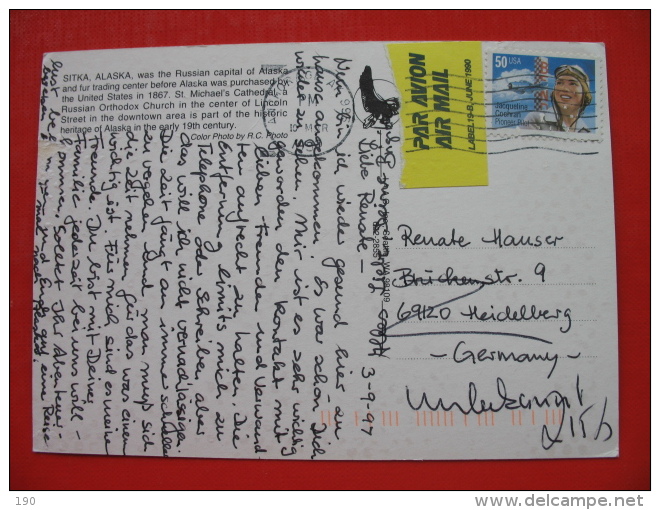 SITKA, ALASKA, was the Russian capital of Alaska
and fur trading center before Alaska was purchased by
the United States in 1867. St. Michael's Cathedral, a
Russian Orthodox Church in the center of Lincoln
Street in the downtown area is part of the historic
heritage of Alaska in the early 19th century.
Color Photo by R.C. Photo
PAR AVION
AIR MAIL
LABEL 19-B, JUNE 1990
50 USA
Jacqueline
Cochran
Pioneer Pilot
3-9-97
Liebe Renate –
Nun bin ich wieder gesund hier an
Hause angekommen. Es war schön Dich
wieder zu sehen. Mir ist es sehr wichtig
geworden den Kontakt mit
lieben Freunden und Verwand-
ten aufrecht zu halten. Die
Entfernung limits mich zu
Telephone oder Schreiben aber
das will ich nicht vernachlässigen.
Die Zeit fängt an immer schneller
zu vergehen und man muß sich
die Zeit nehmen für das was einem
wichtig ist. Für mich sind es meine
Freunde. Du bist mit Deiner
Familie jederzeit bei uns will-
kommen. Solltet Ihr Abenteuer-
lust
Renate Hauser
Brückenstr. 9
69120 Heidelberg
– Germany –
Unbekannt
190